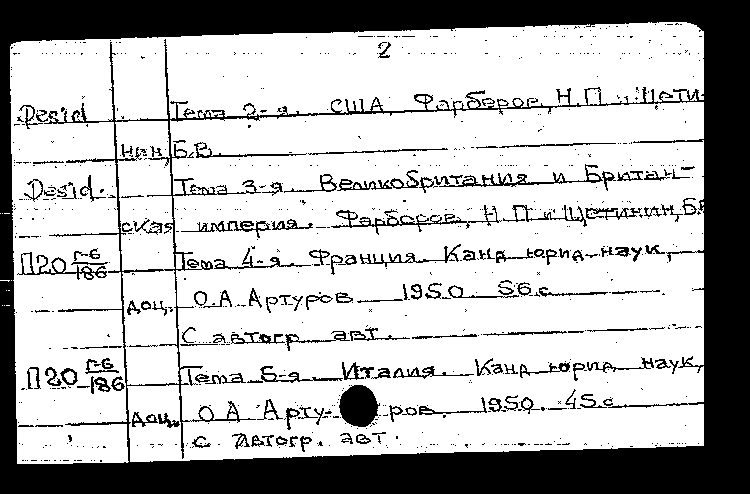 2
Desid Тема 2-я. США. Фарберов, Н.П. и Щети-
нин, Б.В.
Desid. Тема 3-я. Великобритания и Британ-
ская империя. Фарберов, Н.П. и Щетинин, Б.В
П20 Г-6/186 Тема 4-я. Франция. Канд. юрид. наук,
доц. О.А. Артуров. 1950. 56 с.
С автогр. авт.
П20 Г-6/186 Тема 5-я. Италия. Канд. юрид. наук,
доц. О.А. Арту- ров. 1950. 45 с.
С автогр. авт.